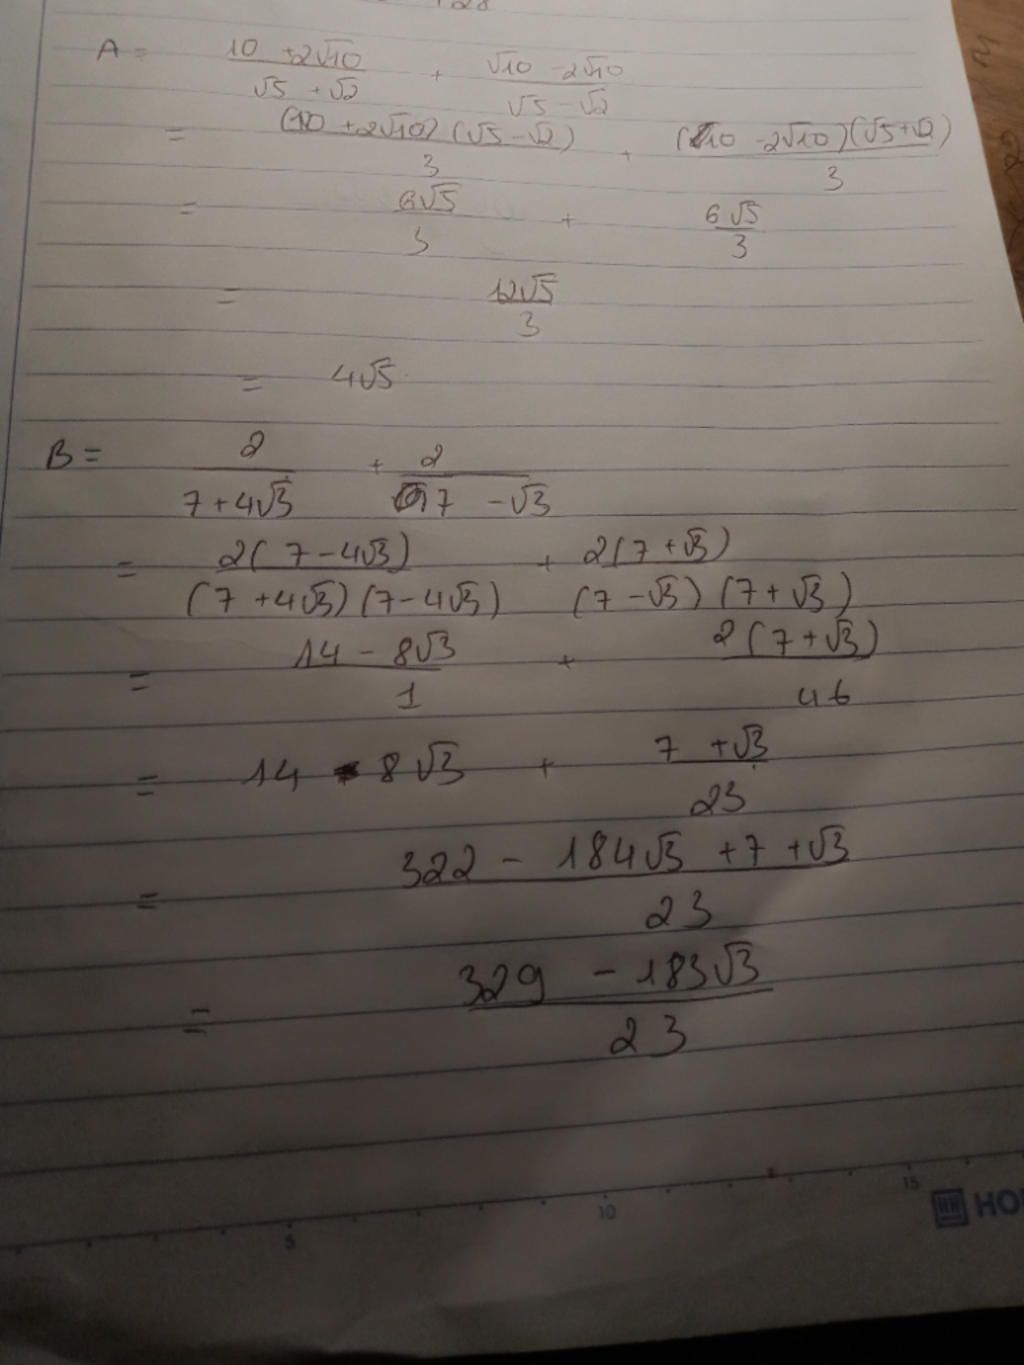 A = (10 + 2√10)/(√5 + √2) + (√10 - 2√10)/(√5 - √2)
= (10 + 2√10)(√5 - √2)/3 + (10 - 2√10)(√5 + √2)/3
= 6√5/3 + 6√5/3
= 12√5/3
= 4√5
B = 2/(7 + 4√3) + 2/(7 - √3)
= 2(7 - 4√3)/((7 + 4√3)(7 - 4√3)) + 2(7 + √3)/((7 - √3)(7 + √3))
= (14 - 8√3)/1 + 2(7 + √3)/46
= 14 - 8√3 + (7 + √3)/23
= (322 - 184√3 + 7 + √3)/23
= (329 - 183√3)/23
5 10 15
HO